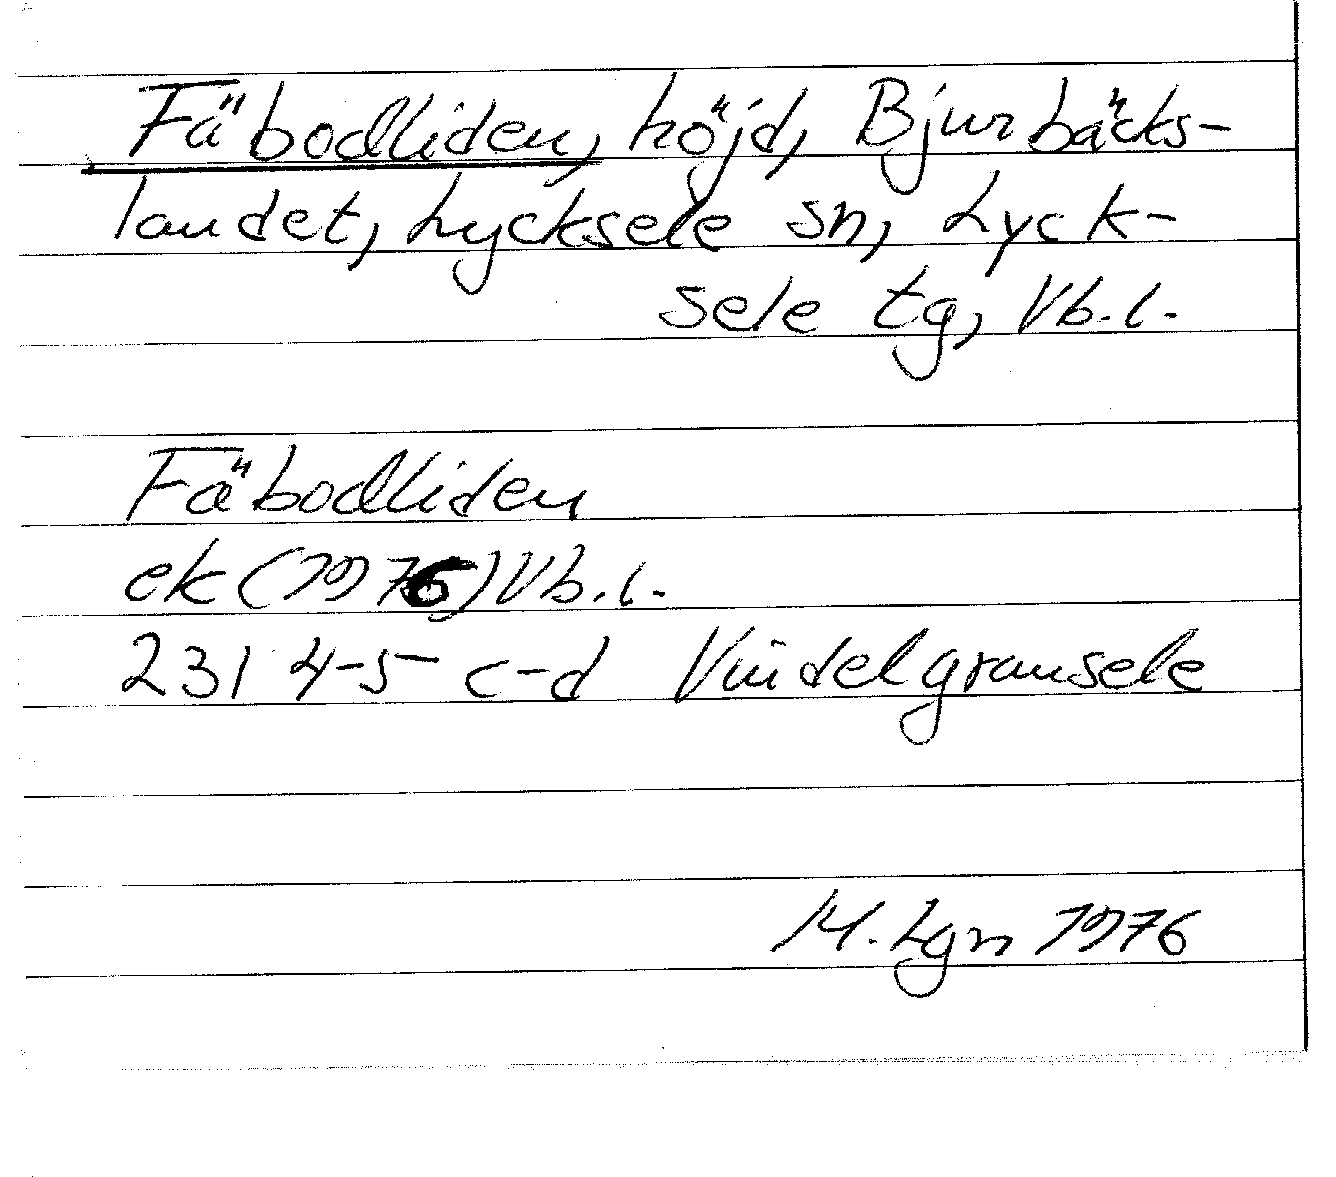 Fäbodliden, höjd, Bjurbäcks-
landet, Lycksele sn, Lyck-
sele tg, Vb.l.
Fäbodliden
ek (1976) Vb.l.
231 4-5 c-d Vindelgransele
M. Lgn 1976